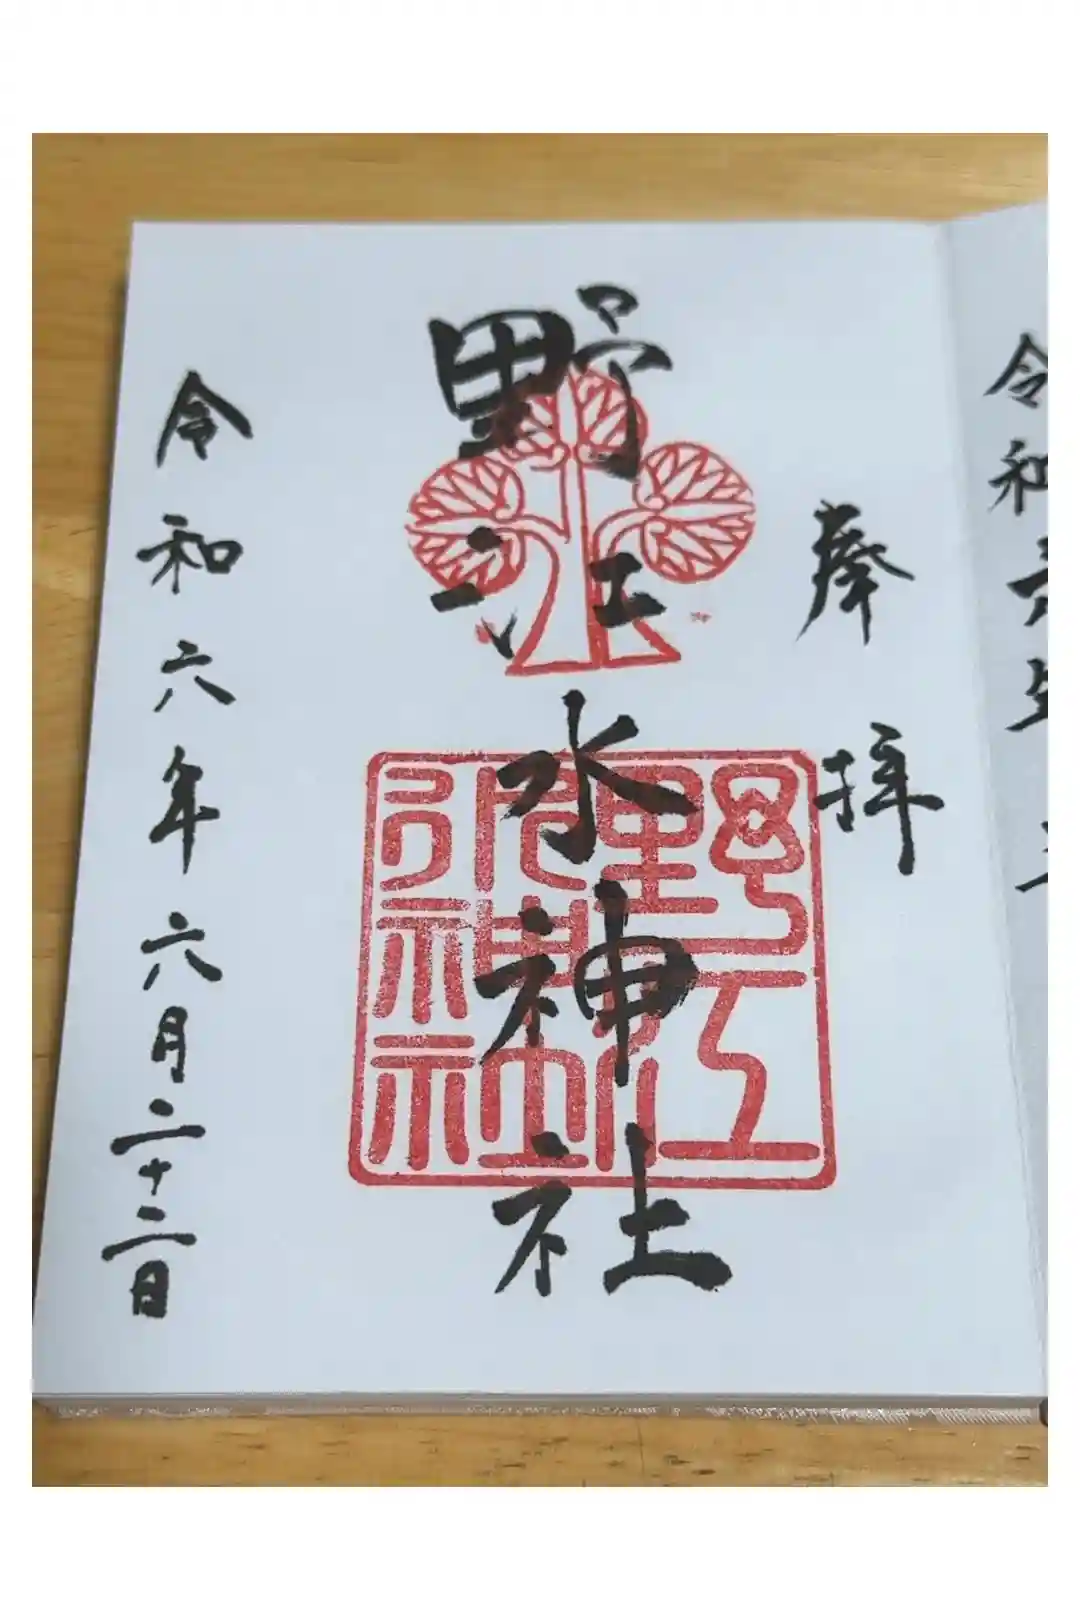 令和六年
奉拝
野江水神社
野江
水神社
令和六年六月二十二日